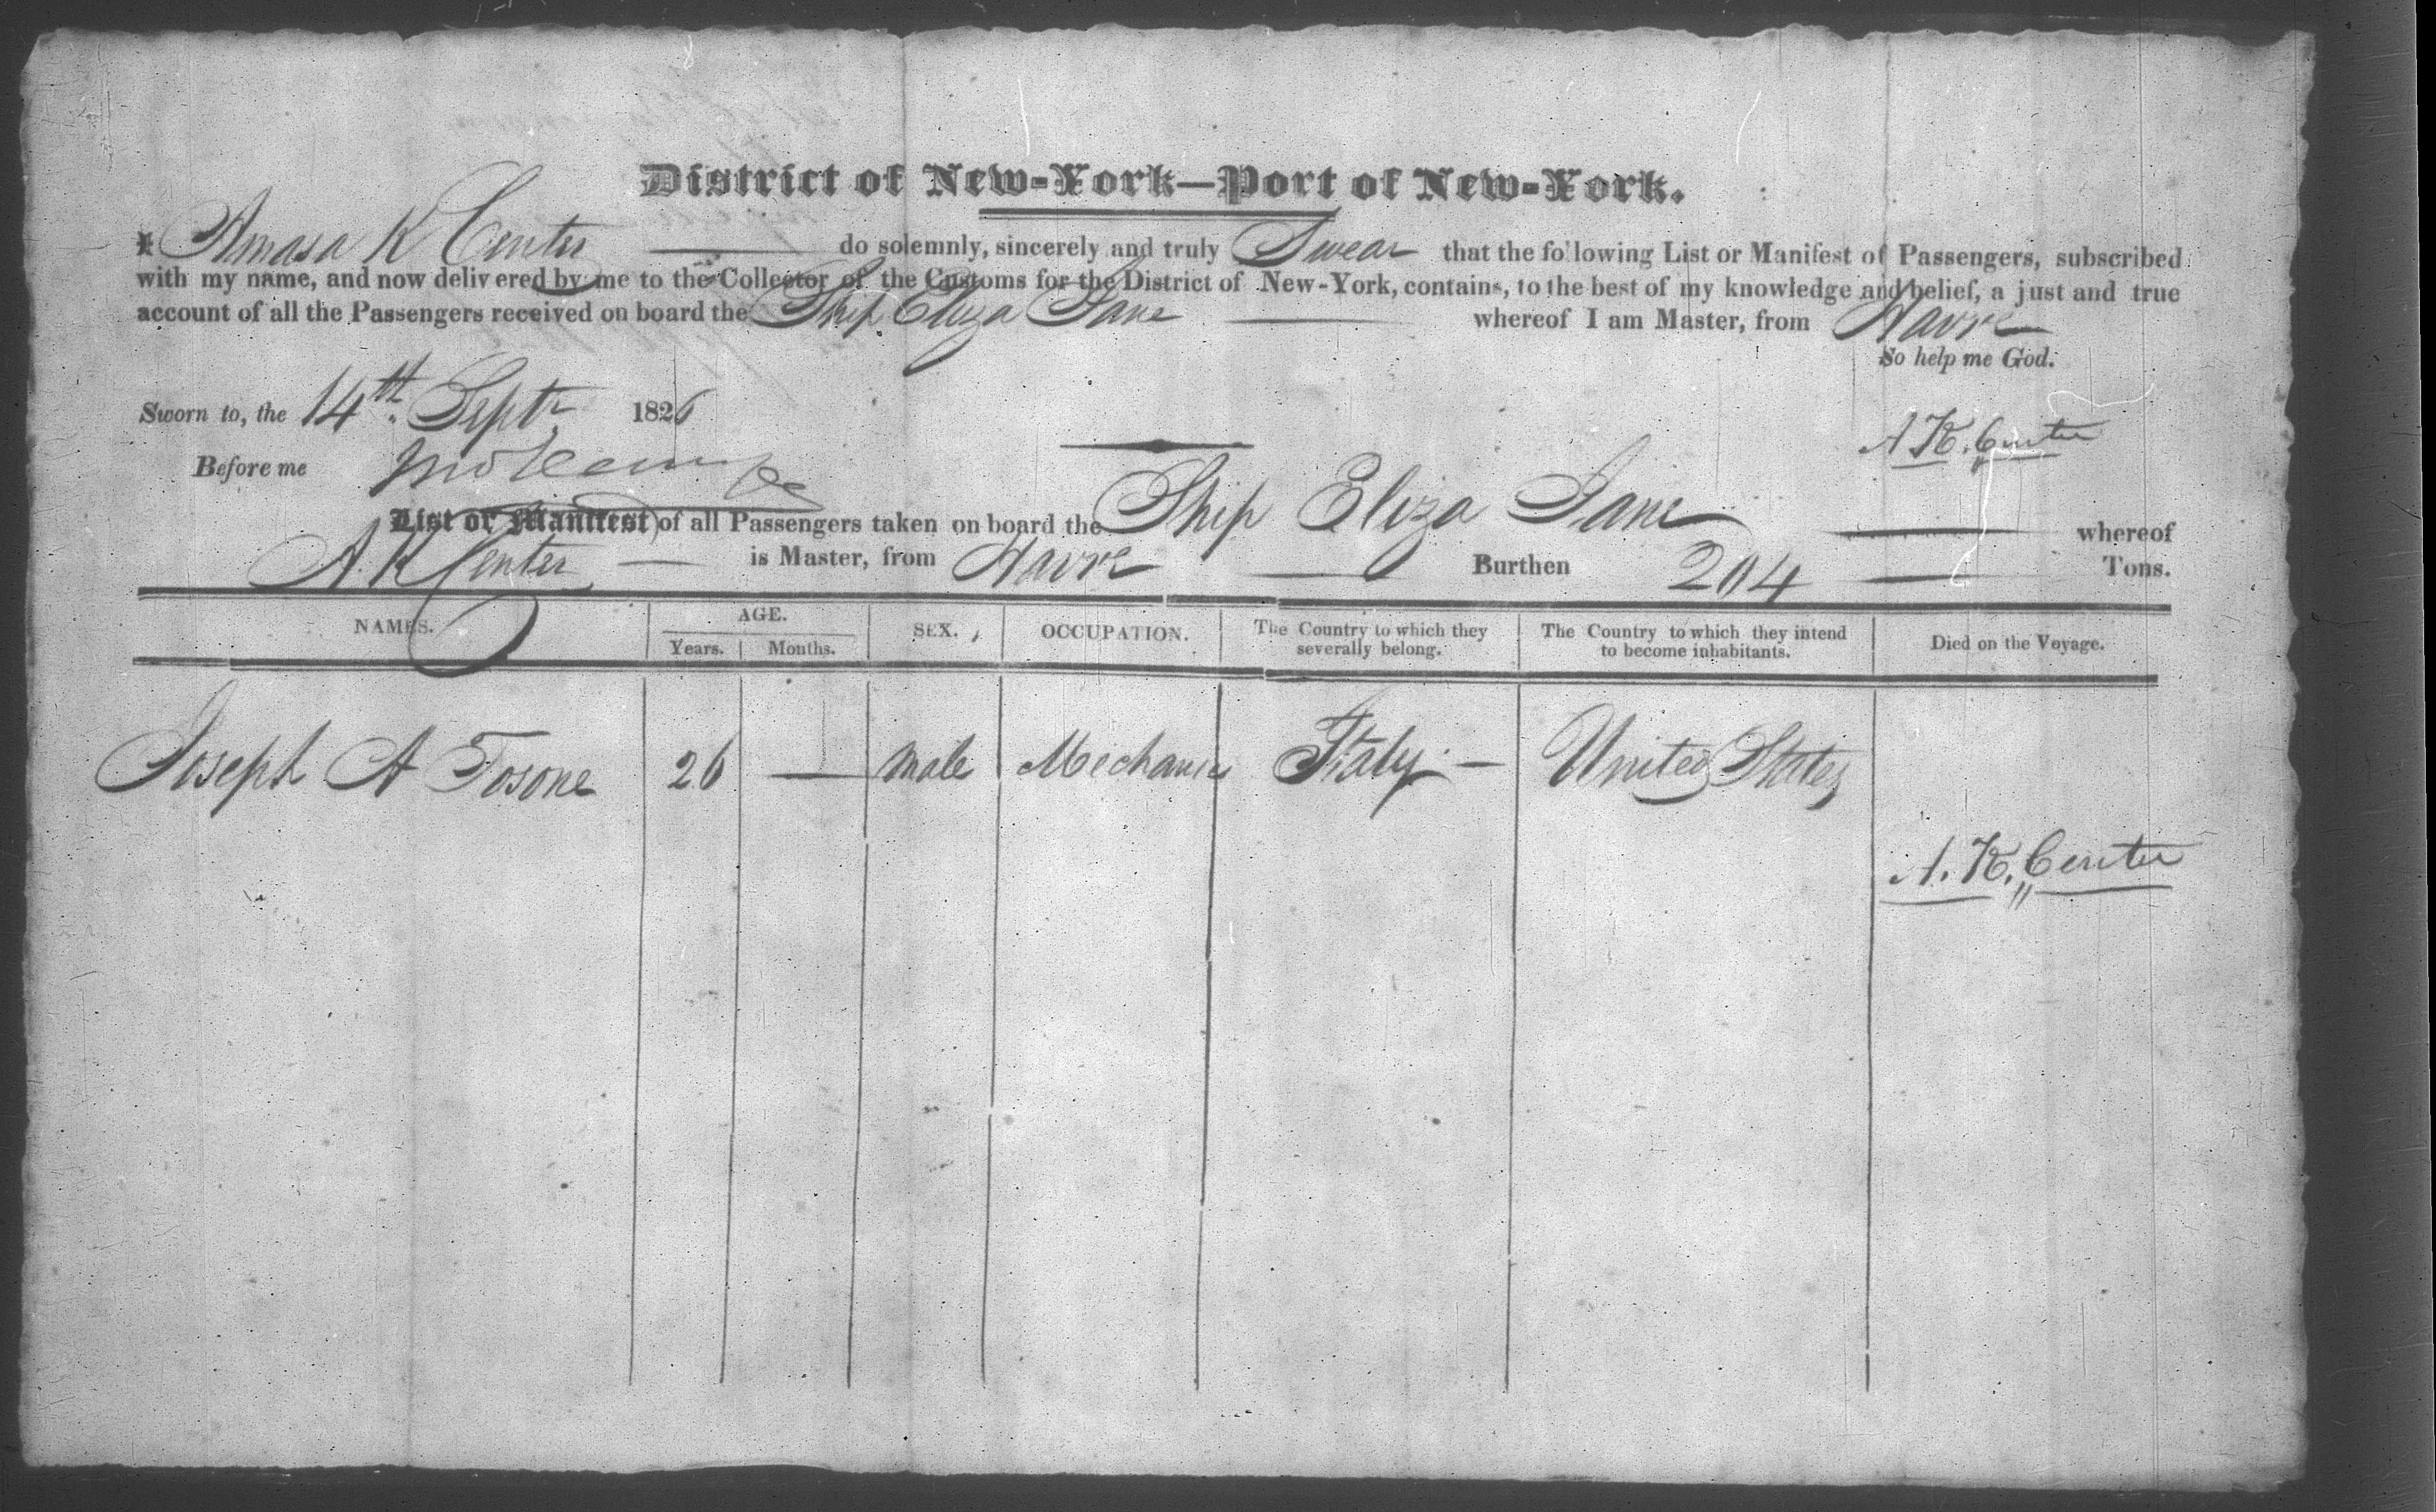 District of New-York—Port of New-York.
I Amasa K Center do solemnly, sincerely and truly Swear that the following List or Manifest of Passengers, subscribed
with my name, and now delivered by me to the Collector of the Customs for the District of New-York, contains, to the best of my knowledge and belief, a just and true
account of all the Passengers received on board the Ship Eliza Jane whereof I am Master, from Havre
So help me God.
Sworn to, the 14th Sept 1826
A K. Center
Before me
List or Manifest of all Passengers taken on board the Ship Eliza Jane whereof
A. K Center is Master, from Havre Burthen 204 Tons.
NAMES. AGE. SEX. OCCUPATION. The Country to which they severally belong. The Country to which they intend to become inhabitants. Died on the Voyage.
Years. Months.
Joseph A Tosone 26 — male Mechanic Italy — United States
A. K. Center